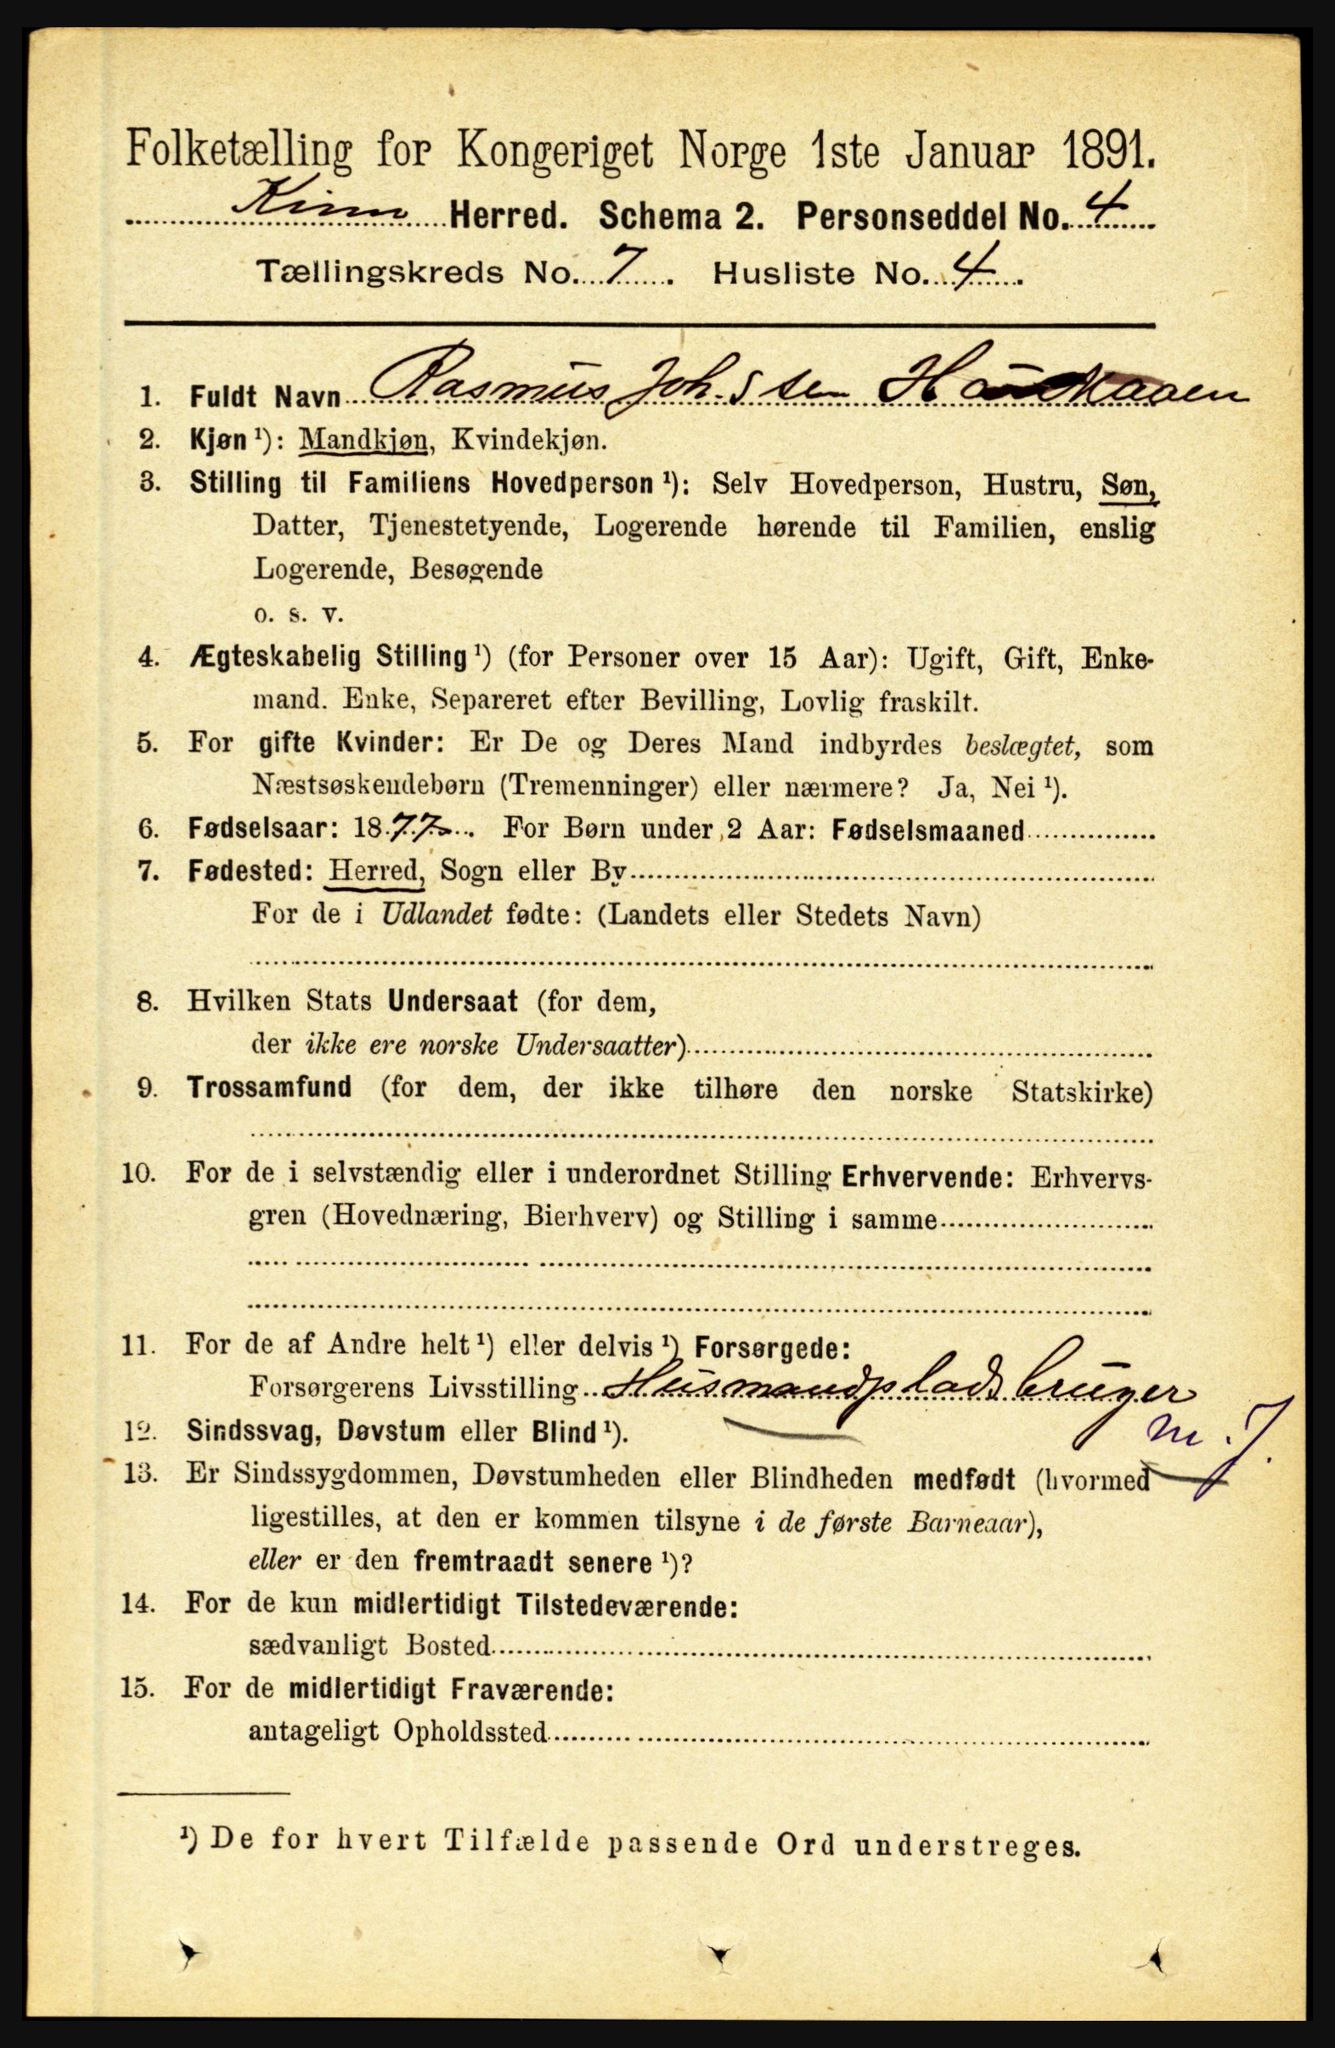 Folketælling for Kongeriget Norge 1ste Januar 1891.
Kinn Herred. Schema 2. Personseddel No. 4
Tællingskreds No. 7. Husliste No. 4.
1. Fuldt Navn Rasmus Joh.s sen
2. Kjøn ¹): Mandkjøn, Kvindekjøn.
3. Stilling til Familiens Hovedperson ¹): Selv Hovedperson, Hustru, Søn,
Datter, Tjenestetyende, Logerende hørende til Familien, enslig
Logerende, Besøgende
o. s. v.
4. Ægteskabelig Stilling ¹) (for Personer over 15 Aar): Ugift, Gift, Enke-
mand. Enke, Separeret efter Bevilling, Lovlig fraskilt.
5. For gifte Kvinder: Er De og Deres Mand indbyrdes beslægtet, som
Næstsøskendebørn (Tremenninger) eller nærmere? Ja, Nei ¹).
6. Fødselsaar: 1877. For Børn under 2 Aar: Fødselsmaaned
7. Fødested: Herred, Sogn eller By
For de i Udlandet fødte: (Landets eller Stedets Navn)
8. Hvilken Stats Undersaat (for dem,
der ikke ere norske Undersaatter)
9. Trossamfund (for dem, der ikke tilhøre den norske Statskirke)
10. For de i selvstændig eller i underordnet Stilling Erhvervende: Erhvervs-
gren (Hovednæring, Bierhverv) og Stilling i samme
11. For de af Andre helt ¹) eller delvis ¹) Forsørgede:
Forsørgerens Livsstilling Husmandpladsbruger
m. J.
12. Sindssvag, Døvstum eller Blind ¹).
13. Er Sindssygdommen, Døvstumheden eller Blindheden medfødt (hvormed
ligestilles, at den er kommen tilsyne i de første Barneaar),
eller er den fremtraadt senere ¹)?
14. For de kun midlertidigt Tilstedeværende:
sædvanligt Bosted
15. For de midlertidigt Fraværende:
antageligt Opholdssted
¹) De for hvert Tilfælde passende Ord understreges.